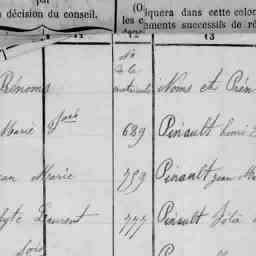 par
a décision du conseil.
(O
les c
iquera dans cette colon
ments successifs de ré
12
13
No
de la
Prénoms
Noms et Prén
Marie José
689
Pinault Henri
ean Marie
759
Pinault Jean Ma
Laurent
777
Pinault
José